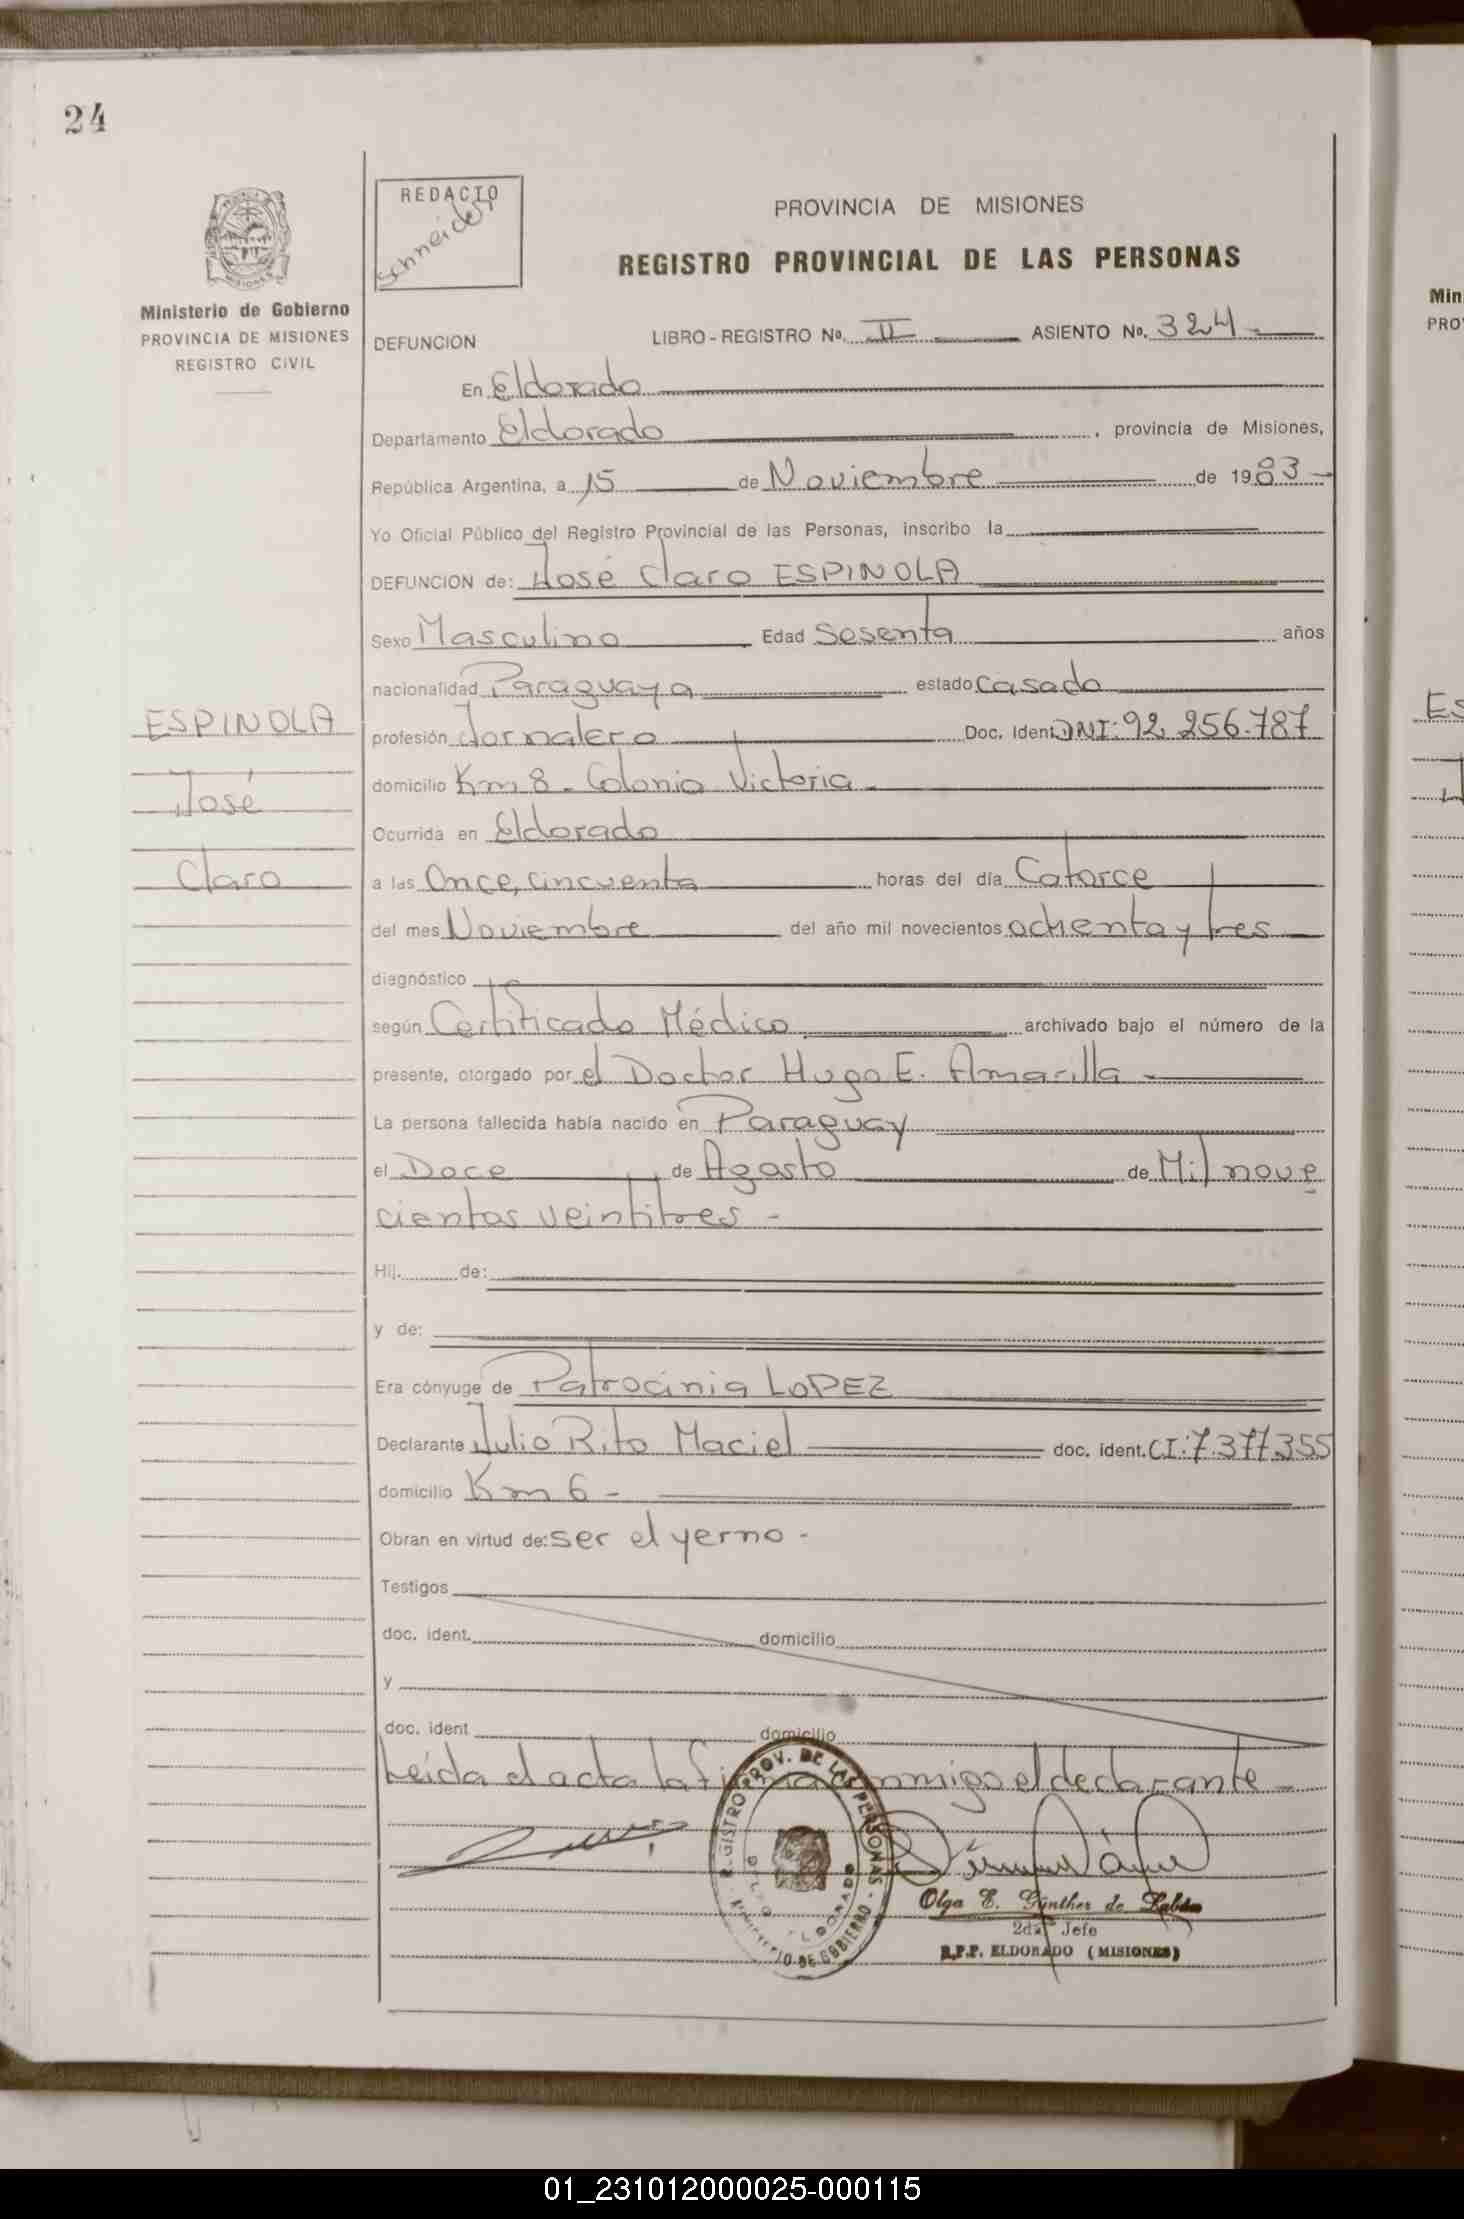 24
REDACTO
Schneider
PROVINCIA DE MISIONES
REGISTRO PROVINCIAL DE LAS PERSONAS
Ministerio de Gobierno
PROVINCIA DE MISIONES
REGISTRO CIVIL
DEFUNCION LIBRO-REGISTRO No. II ASIENTO No. 324
En Eldorado
Departamento Eldorado, provincia de Misiones,
República Argentina, a 15 de Noviembre de 1983-
Yo Oficial Público del Registro Provincial de las Personas, inscribo la
DEFUNCION de: José Claro ESPINOLA
Sexo Masculino Edad Sesenta años
nacionalidad Paraguaya estado Casado
ESPINOLA
José
Claro
profesión Jornalero Doc. Ident DNI: 92.256.787
domicilio Km 8 - Colonia Victoria -
Ocurrida en Eldorado
a las Once, cincuenta horas del día Catorce
del mes Noviembre del año mil novecientos ochenta y tres -
diagnóstico
según Certificado Médico archivado bajo el número de la
presente, otorgado por el Doctor Hugo E. Amarilla -
La persona fallecida había nacido en Paraguay
el Doce de Agosto de Mil nove
cientos veintitres -
Hij. de:
y de:
Era cónyuge de Patrocinia LOPEZ
Declarante Julio Rito Maciel doc. ident. CI: 7.377.355
domicilio Km 6 -
Obran en virtud de: ser el yerno -
Testigos
doc. ident. domicilio
y
doc. ident domicilio
Leída el acta la firma conmigo el declarante -
REGISTRO PROV. DE LAS PERSONAS
DE GOBIERNO
Olga E. Günther de
2da Jefe
R.P.P. ELDORADO (MISIONES)
Min
PRO
ES
01_231012000025-000115